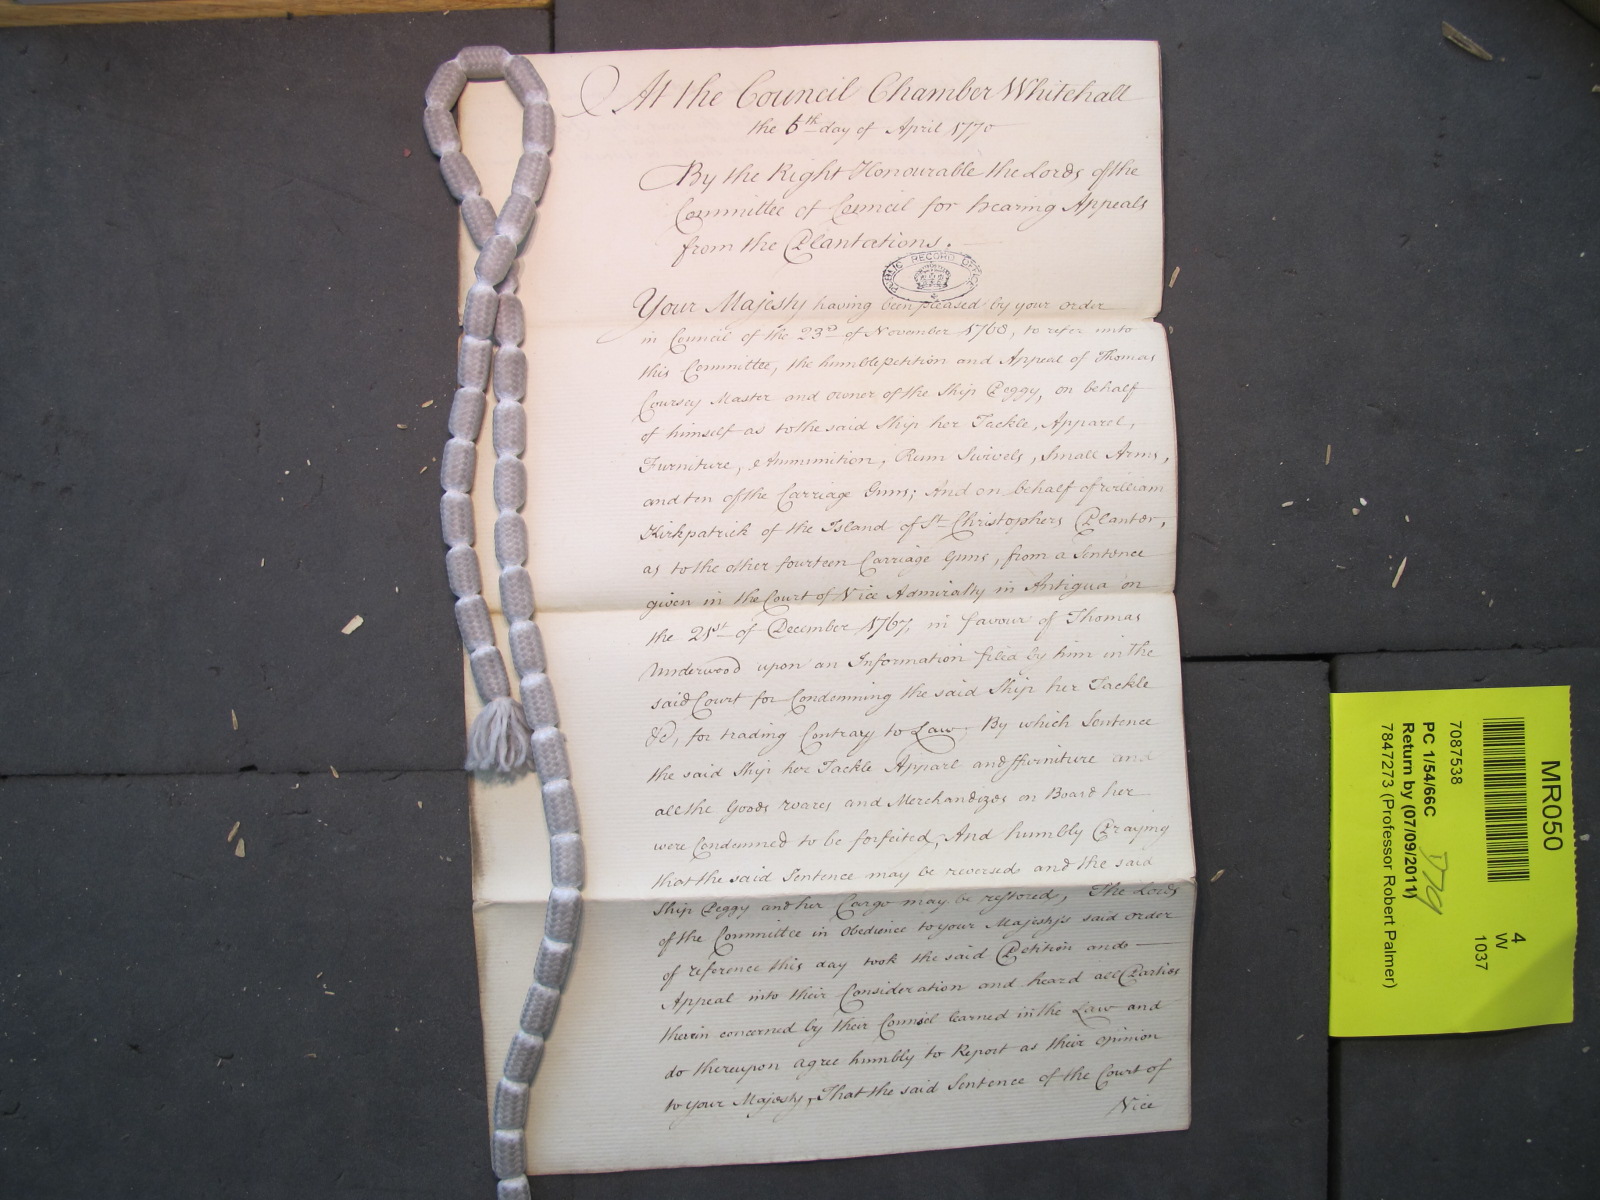 At the Council Chamber Whitehall
the 6th day of April 1770
By the Right Honourable the Lords of the
Committee of Council for hearing Appeals
from the Plantations.
PUBLIC RECORD OFFICE
Your Majesty having been pleased by your order
in Council of the 23d of November 1768, to refer unto
this Committee, the humble petition and Appeal of Thomas
Coursey Master and owner of the Ship Peggy, on behalf
of himself as to the said Ship her Tackle, Apparel,
Furniture, & Ammunition, Rum Swivels, Small Arms,
and ten of the Carriage Guns; And on behalf of William
Kirkpatrick of the Island of St Christophers Planter,
as to the other fourteen Carriage Guns, from a Sentence
given in the Court of Vice Admiralty in Antigua on
the 21st of December 1767, in favour of Thomas
Underwood upon an Information filed by him in the
said Court for Condemning the said Ship her Tackle
&c, for trading Contrary to Law, By which Sentence
the said Ship her Tackle Apparl and ffurniture and
all the Goods wares and Merchandizes on Board her
were Condemned to be forfeited, And humbly Praying
that the said Sentence may be reversed and the said
Ship Peggy and her Cargo may be restored, The Lords
of the Committee in Obedience to your Majesty's said order
of reference this day took the said Petition and
Appeal into their Consideration and heard all Parties
therein concerned by their Counsel learned in the Law and
do thereupon agree humbly to Report as their opinion
to your Majesty, That the said Sentence of the Court of
Vice
MR050
4
W
1037
7087538
PC 1/54/66C
Return by (07/09/2011)
7847273 (Professor Robert Palmer)